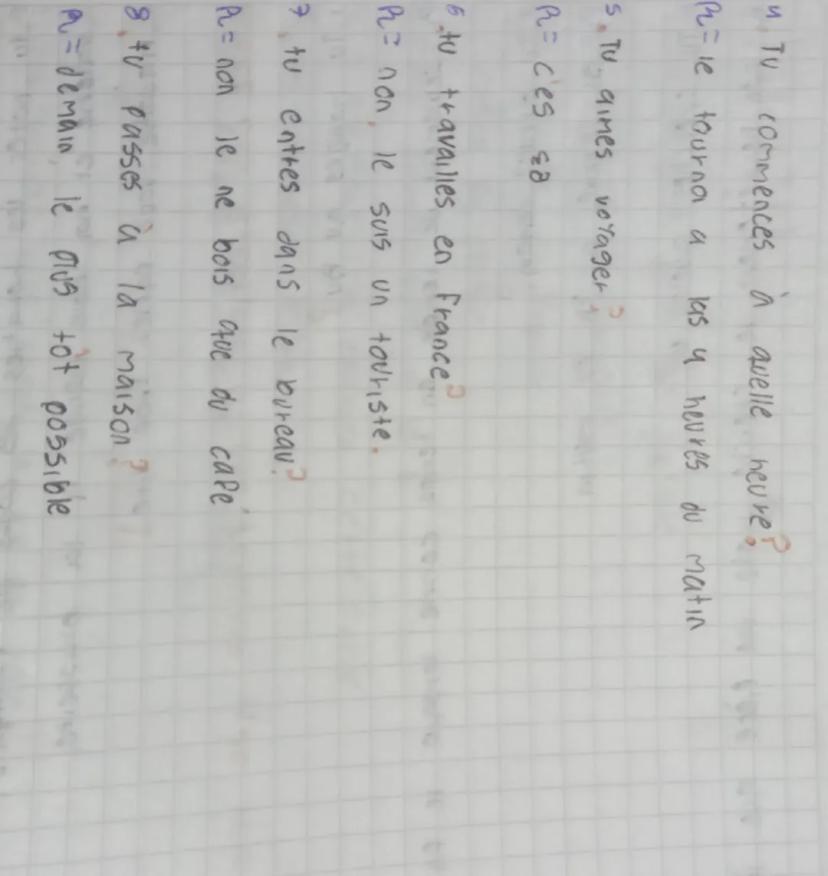 4. Tu commences à quelle heure?
R= le tourna a las 4 heures du matin
5. Tu aimes voyager?
R= c'es ça
6. tu travailles en france?
R= non, le suis un touriste.
7. tu entres dans le bureau?
R= non le ne bois que du café
8. tu passes à la maison?
R= demain, le plus tôt possible